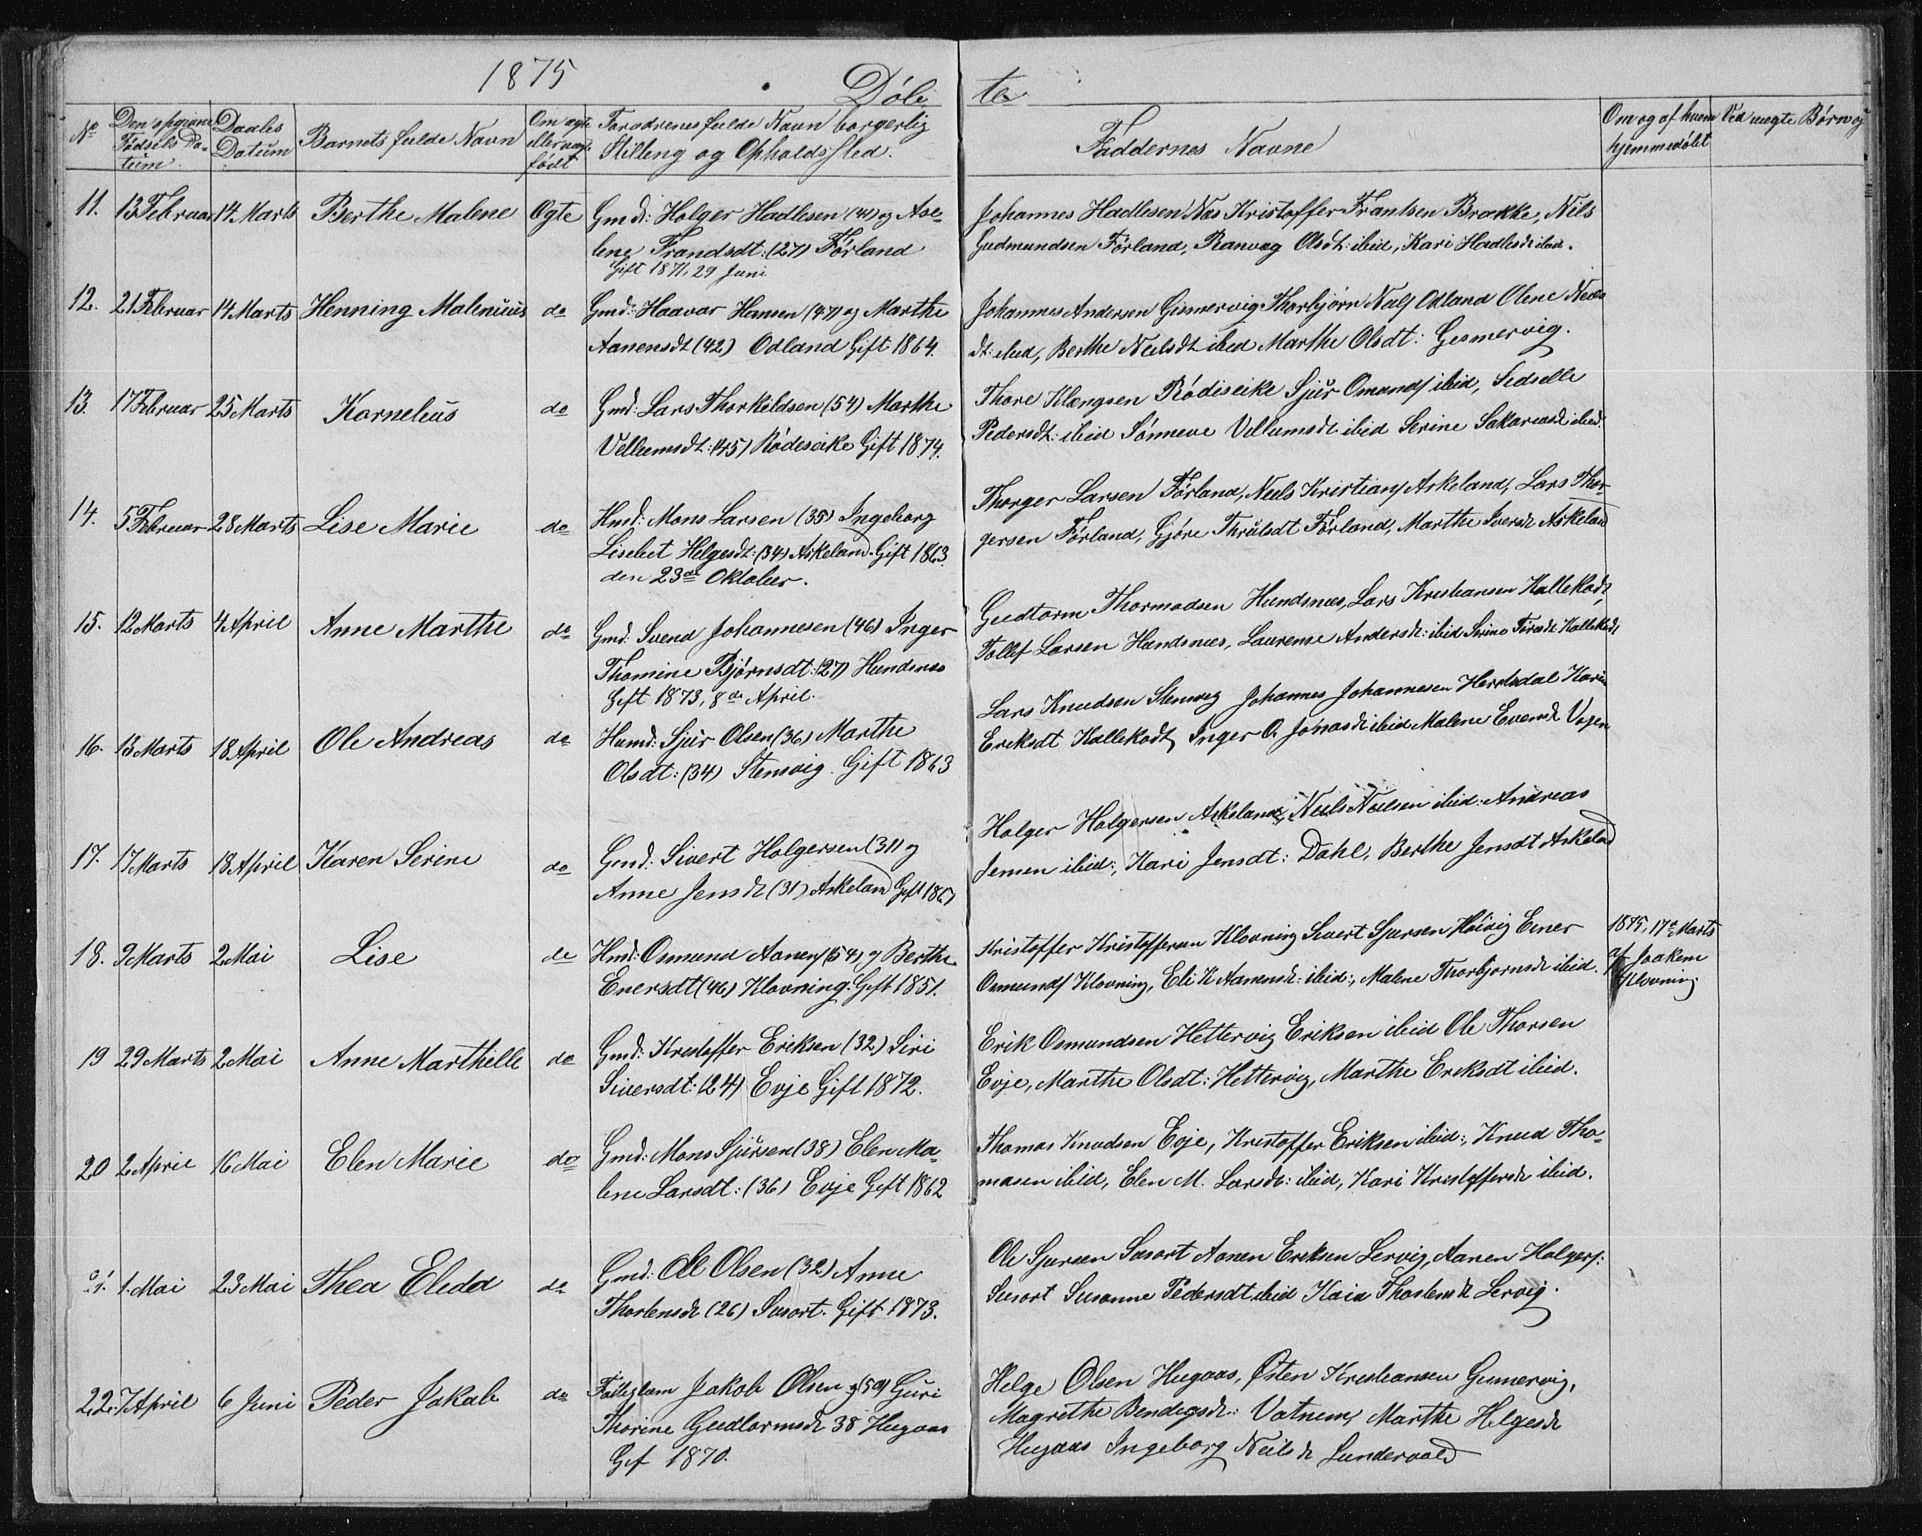 1875
Døbte
No
Den opgivne Fødsels Datum
Daabs Datum
Barnets fulde Navn
Om ægte eller uægte født
Forældrenes fulde Navn borgerlig Stilling og Opholdssted.
Faddernes Navne
Om og af hvem hjemmedøbt
Ved uægte Børn
11. 13 Februar 14 Marts Berthe Malene Ægte Gmd: Holger Hadlesen (41) og Ase-
lene Frandsdt: (27) Førland
Gift 1871, 29 Juni
Johannes Hadlesen Nas Kristoffer Frantsen Brække, Nils
Gudmundsen Førland, Ranvag Olsdt: ibid, Kari Hadlesdt ibid.
12. 21 Februar 14 Marts Henning Malenius do Gmd: Haavar Hansen (47) og Marthe
Aanensdt (42) Odland Gift 1864.
Johannes Andersen Gismervig Thorbjørn Nalf Odland Olene Neels
dt: ibid, Berthe Neilsdt ibid Marthe Olsdt: Gesmervig.
13. 17 Februar 25 Marts Kornelius do Gmd: Lars Thorkildsen (54) Marthe
Vellumsdt: (45) Rødeseike Gift 1874.
Thore Klængsen Rødiseike Sjur Omands ibid, Sedselle
Pedersdt: ibid Sønneve Vellumsdt ibid Serine Sakariasdt ibid.
14. 5 Februar 28 Marts Lise Marie do Hmd: Mons Larsen (35) Ingeborg
Lisebet Helgesdt: (34) Askeland. Gift 1863.
den 23de Oktober.
Thorger Larsen Førland, Neels Kristians Askeland, Lars Thor-
gersen Førland, Gjøre Thrulsdt Førland, Marthe Iversdt Askeland
15. 12 Marts 4 April Anne Marthe do Gmd: Svend Johannesen (46) Inger
Thomine Bjørnsdt: (27) Hundsnes
Gift 1873, 8de April.
Gudtorm Thormodsen Hundsnæs, Lars Kreshansen Kallekodt,
Tollef Larsen Hundsnæs, Laurense Andersdt: ibid Serine Toresdt: Kallekodt
16. 13 Marts 18 April Ole Andreas do Humd: Sjur Olsen (36) Marthe
Olsdt: (34) Stensvig. Gift 1863
Lars Knudsen Stensvig Johannes Johannesen Herdsdal Kari
Ereksdt Kallekodt, Inger O. Jonasdt ibid Malene Evensdt Vagen
17. 17 Marts 18 April Karen Serine do Gmd: Sivert Holgersen (31) og
Anne Jensdt (31) Askeland Gift 1867
Holger Holgersen Askeland, Neils Neilsen ibid: Andreas
Jensen ibid:, Kari Jensdt: Dahl, Berthe Jensdt Askeland
18. 9 Marts 2 Mai Lise do Hmd: Osmund Aanens (54) og Berthe
Enersdt (46) Klovning. Gift 1851.
Kristoffer Kristoffersen Klovning Sivert Sjursen Høivig Ener
Osmunds Klovning, Eli K Aanensdt: ibid:, Malene Thorbjornsdt ibid.
1875, 17de Marts
af Joakem
Klovning.
19 29 Marts 2 Mai Anne Marthelle do Gmd: Krestoffer Eriksen (32) Siri
Siversdt: (24) Evje Gift 1872.
Erik Osmundsen Hettervig Eriksen ibid Ole Thorsen
Evje, Marthe Olsdt: Hettervig, Marthe Ereksdt ibid.
20 2 April 16 Mai Elen Marie do Gmd: Mons Sjursen (38) Elen Ma-
lene Larsdt: (36) Evje Gift 1862
Thomas Knudsen Evje, Krestoffer Eriksen ibid:, Knud Tho-
masen ibid, Elen M. Larsdt: ibid, Kari Krestoffersdt ibid.
21. 1. Mai 23 Mai Thea Elida do Gmd: Ole Olsen (32) Anne
Thorstensdt (26) Susort. Gift 1873.
Ole Sjursen Susort Aanen Ereksen Lervig, Aanen Holgers:
Susort Susanne Pedersdt ibid Kaia Thorstensdt Lervig.
22. 7 April 6 Juni Peder Jakob do Fattiglem Jakob Olsen (59) Guri
Thorine Gudtormsdt 38 Hugaas
Gif 1870.
Helge Olsen Hugaas, Østen Kreshansen Gismervig,
Magrethe Bendigsdt: Vatnem, Marthe Helgesdt
Hugaas Ingeborg Neilsdt Sundervold